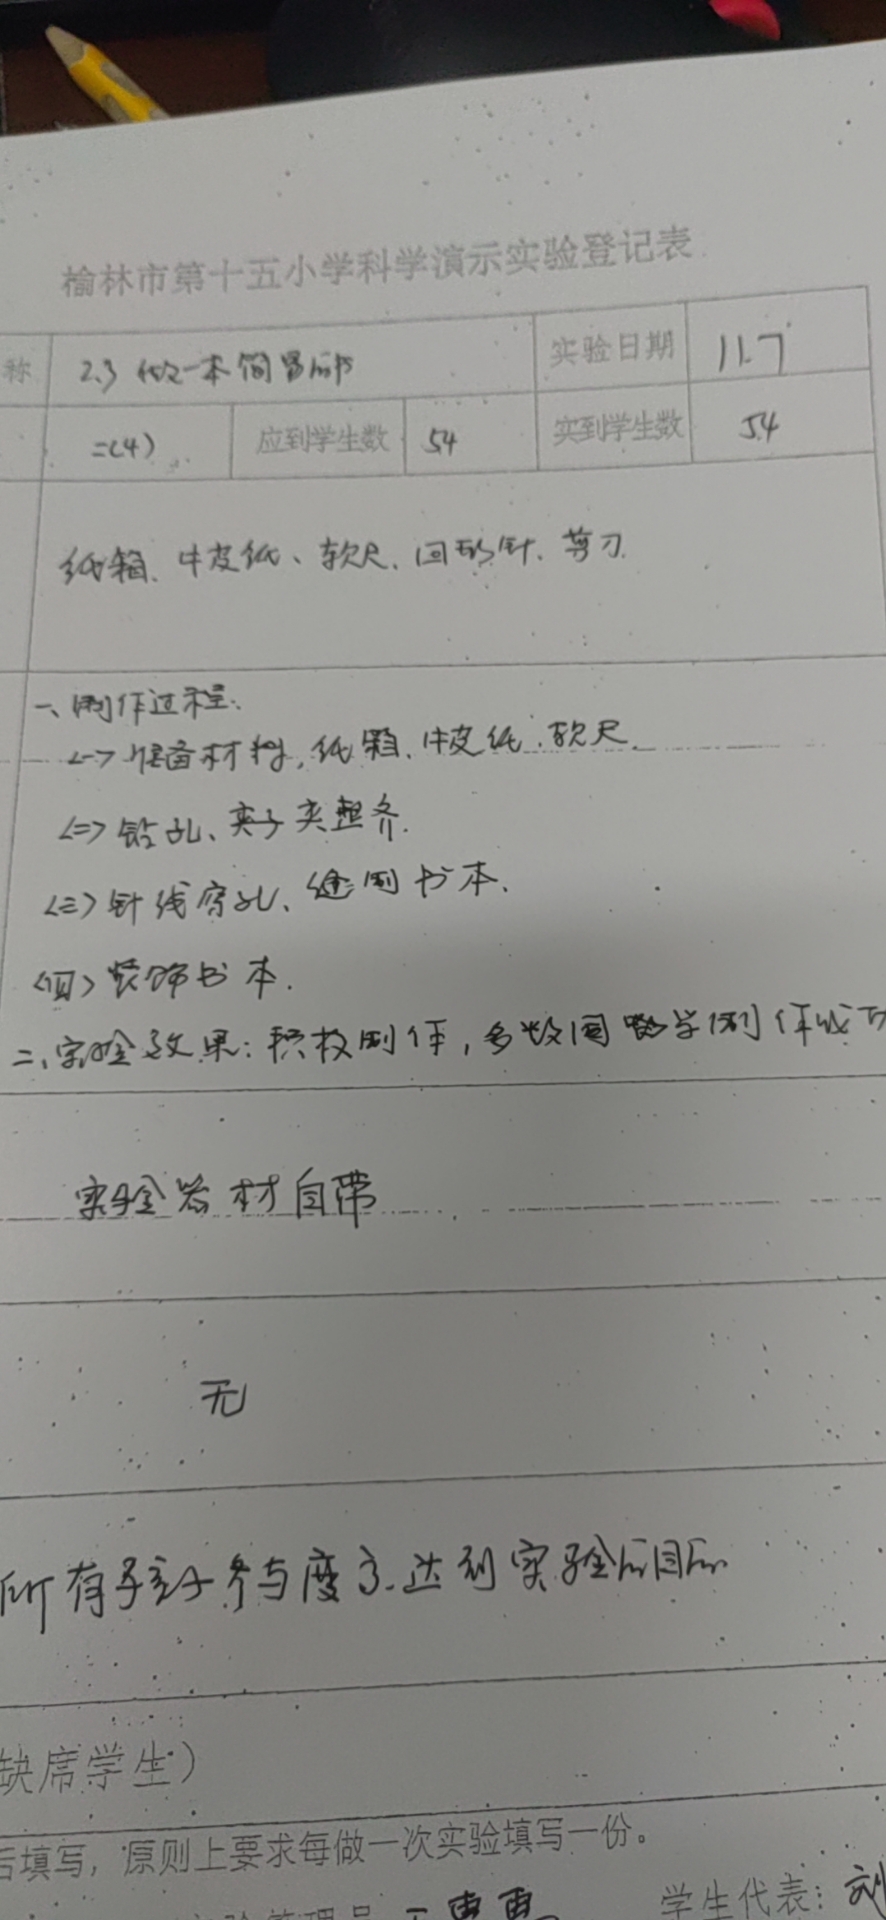 榆林市第十五小学科学演示实验登记表
称 2.3 做一本简易的书 实验日期 11.7
二(4) 应到学生数 54 实到学生数 54
纸箱、牛皮纸、软尺、回形针、剪刀
一、制作过程:
<一>准备材料,纸箱、牛皮纸、软尺
<二>钻孔、夹子夹整齐.
<三>针线穿孔、缝制书本.
<四>装饰书本.
二、实验效果:积极制作,多数同学制作成功
实验器材自带
无
所有孩子参与度高.达到实验的目的
缺席学生)
后填写,原则上要求每做一次实验填写一份。
学生代表:刘